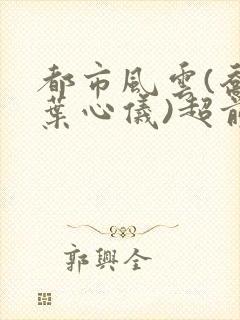 都市風雲(喬
葉心儀)超前
郭興全